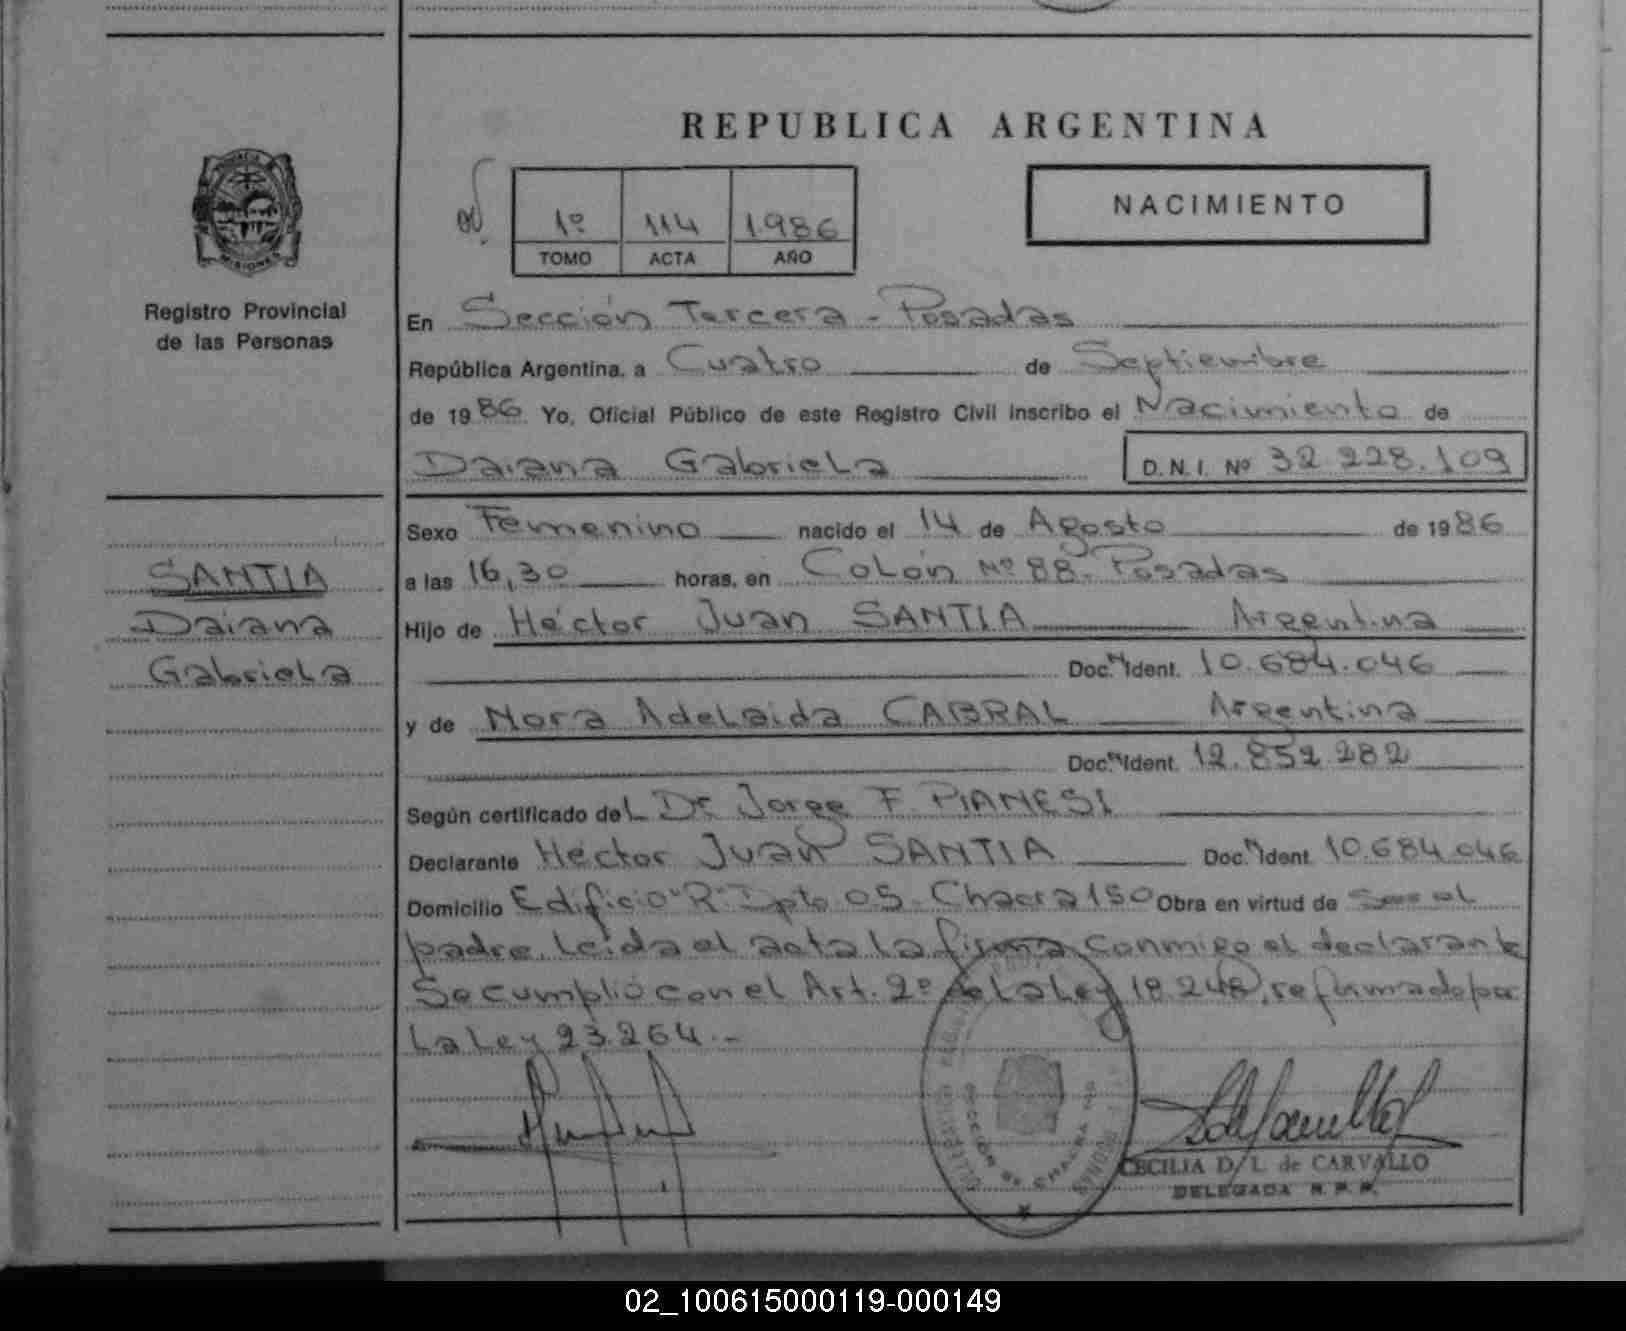 REPUBLICA ARGENTINA
1º 114 1.986
TOMO ACTA AÑO
NACIMIENTO
MISIONES
Registro Provincial
de las Personas
En Sección Tercera - Posadas
República Argentina, a Cuatro de Septiembre
de 1986 Yo, Oficial Público de este Registro Civil inscribo el Nacimiento de
Daiana Gabriela D.N.I. Nº 32.228.109
Sexo Femenino nacido el 14 de Agosto de 1986
a las 16,30 horas, en Colón Nº 88. Posadas
Hijo de Héctor Juan SANTIA Argentina
Doc. Ident. 10.684.046
y de Nora Adelaida CABRAL Argentina
Doc. Ident. 12.852.282
Según certificado del Dr Jorge F. PIANESI
Declarante Héctor Juan SANTIA Doc. Ident 10.684.046
Domicilio Edificio "R" Dpto 05. Chacra 150 Obra en virtud de Ser el
padre. Leida el acta la firma conmigo el declarante
Se cumplió con el Art. 2º de la Ley 18.248, reformado por
La Ley 23.264.-
SANTIA
Daiana
Gabriela
CECILIA D. L. de CARVALLO
DELEGADA R. P. P.
02_100615000119-000149